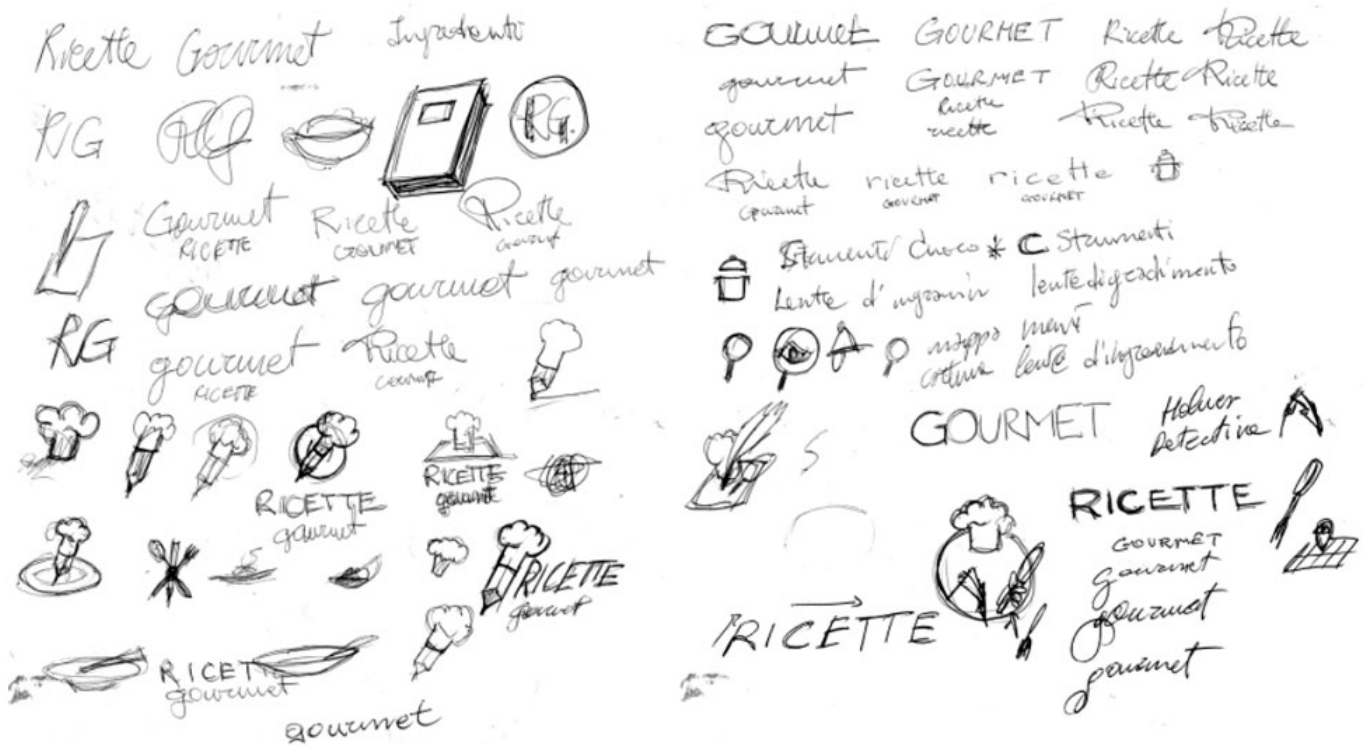 Ricette Gourmet
RG
RG.
Gourmet
RICETTE
Ricette
GOURMET
Ricette
Gourmet
gourmet gourmet gourmet
RG
gourmet
RICETTE
Ricette
Gourmet
RICETTE
gourmet
RICETTE
gourmet
RICETTE
gourmet
RICETT
gourmet
gourmet
Gourmet GOURMET Ricette Ricette
gourmet GOURMET Ricette Ricette
Ricette
gourmet ricette Ricette Ricette
Ricette ricette ricette
Gourmet GOURMET GOURMET
C Strumenti
Lente
menù
lente d'ingrandimento
GOURMET
Detective
RICETTE
GOURMET
gourmet
gourmet
gourmet
RICETTE